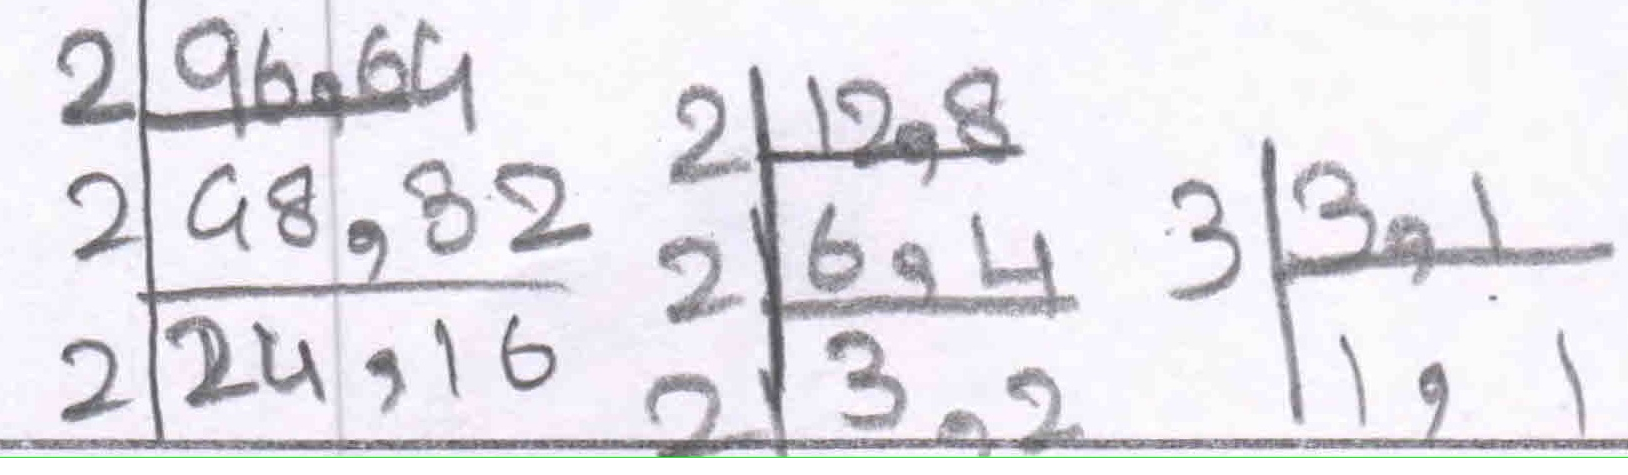 2 | 96,64
2 | 48,32
2 | 24,16
2 | 12,8
2 | 6,4
2 | 3,2
3 | 3,1
1,1